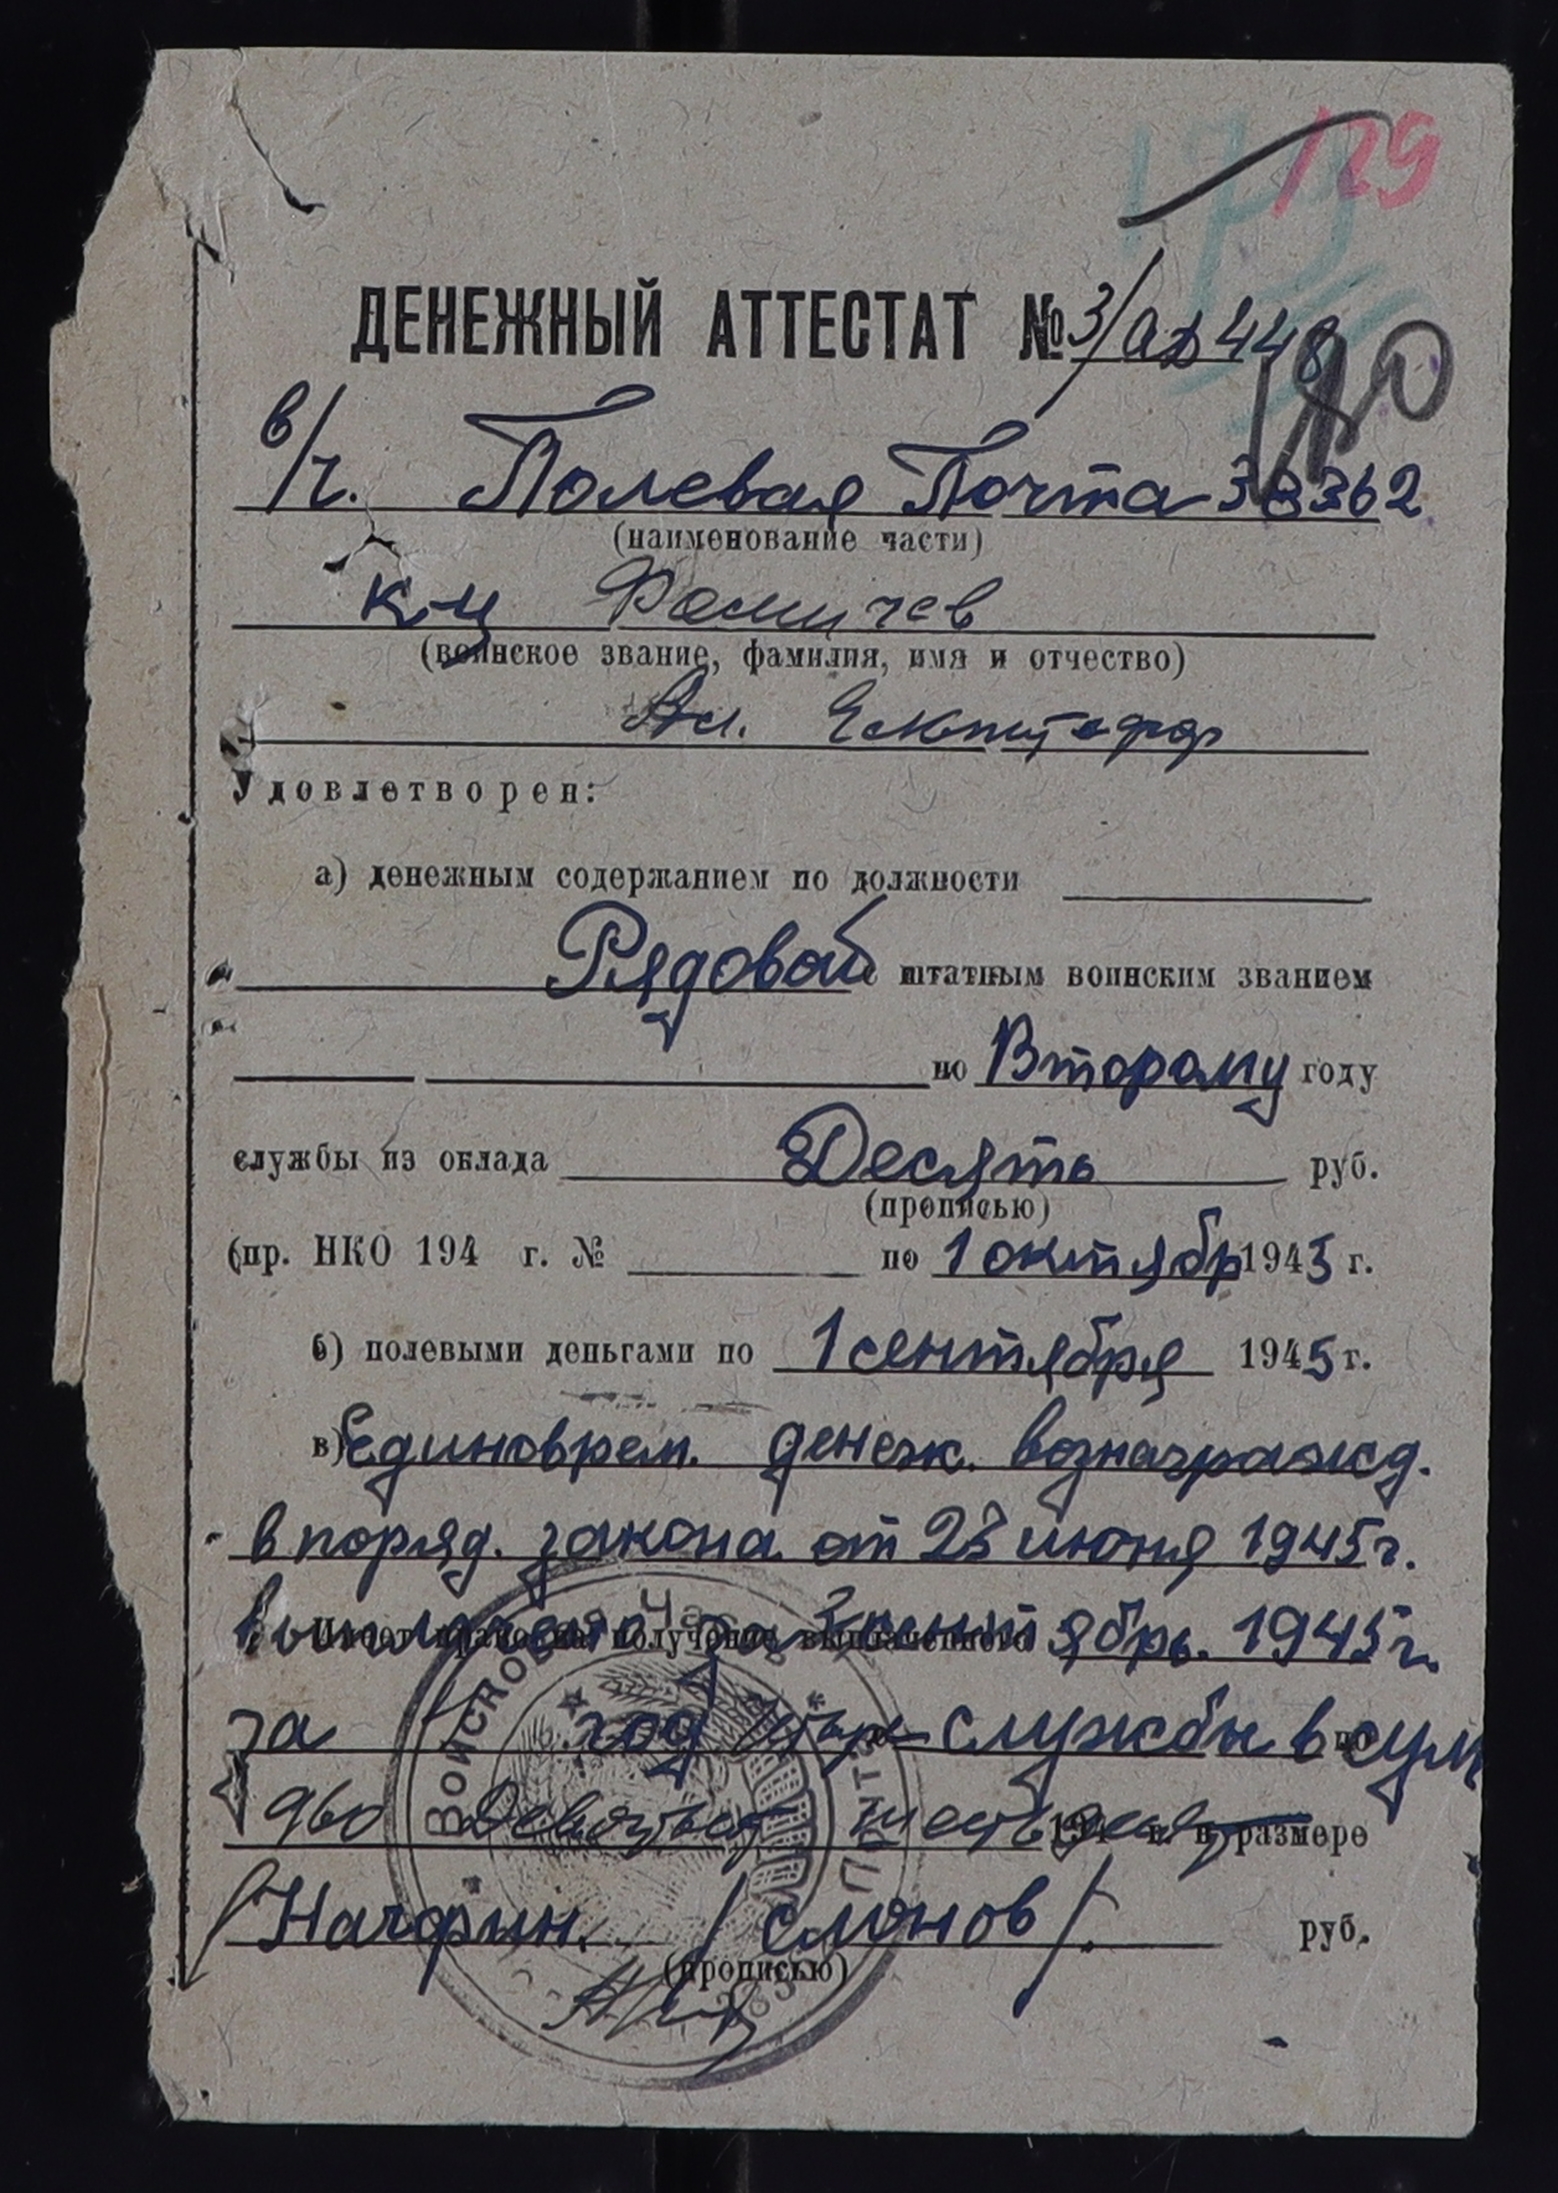 129
ДЕНЕЖНЫЙ АТТЕСТАТ № 3/ад 448
180
в/ч. Полевая Почта 38362
(наименование части)
к-ц Фомичев
(воинское звание, фамилия, имя и отчество)
Ал.
Удовлетворен:
а) денежным содержанием по должности
Рядовой штатным воинским званием
по Второму году
службы из оклада Десять руб.
(прописью)
(пр. НКО 194 г. № по 1 октябр 1945 г.
б) полевыми деньгами по 1 сентября 1945 г.
в) Единоврем. денеж. вознагражд.
в поряд. закона от 23 июня 1945 г.
Имеет право на получение выплаченного ябрь. 1945 г.
за год службы в сум
960 Девятьсот шестьдесят 194 г. в размере
Начфин. /Слонов/. руб.
(прописью)
Войсковая Часть Полевая Почта